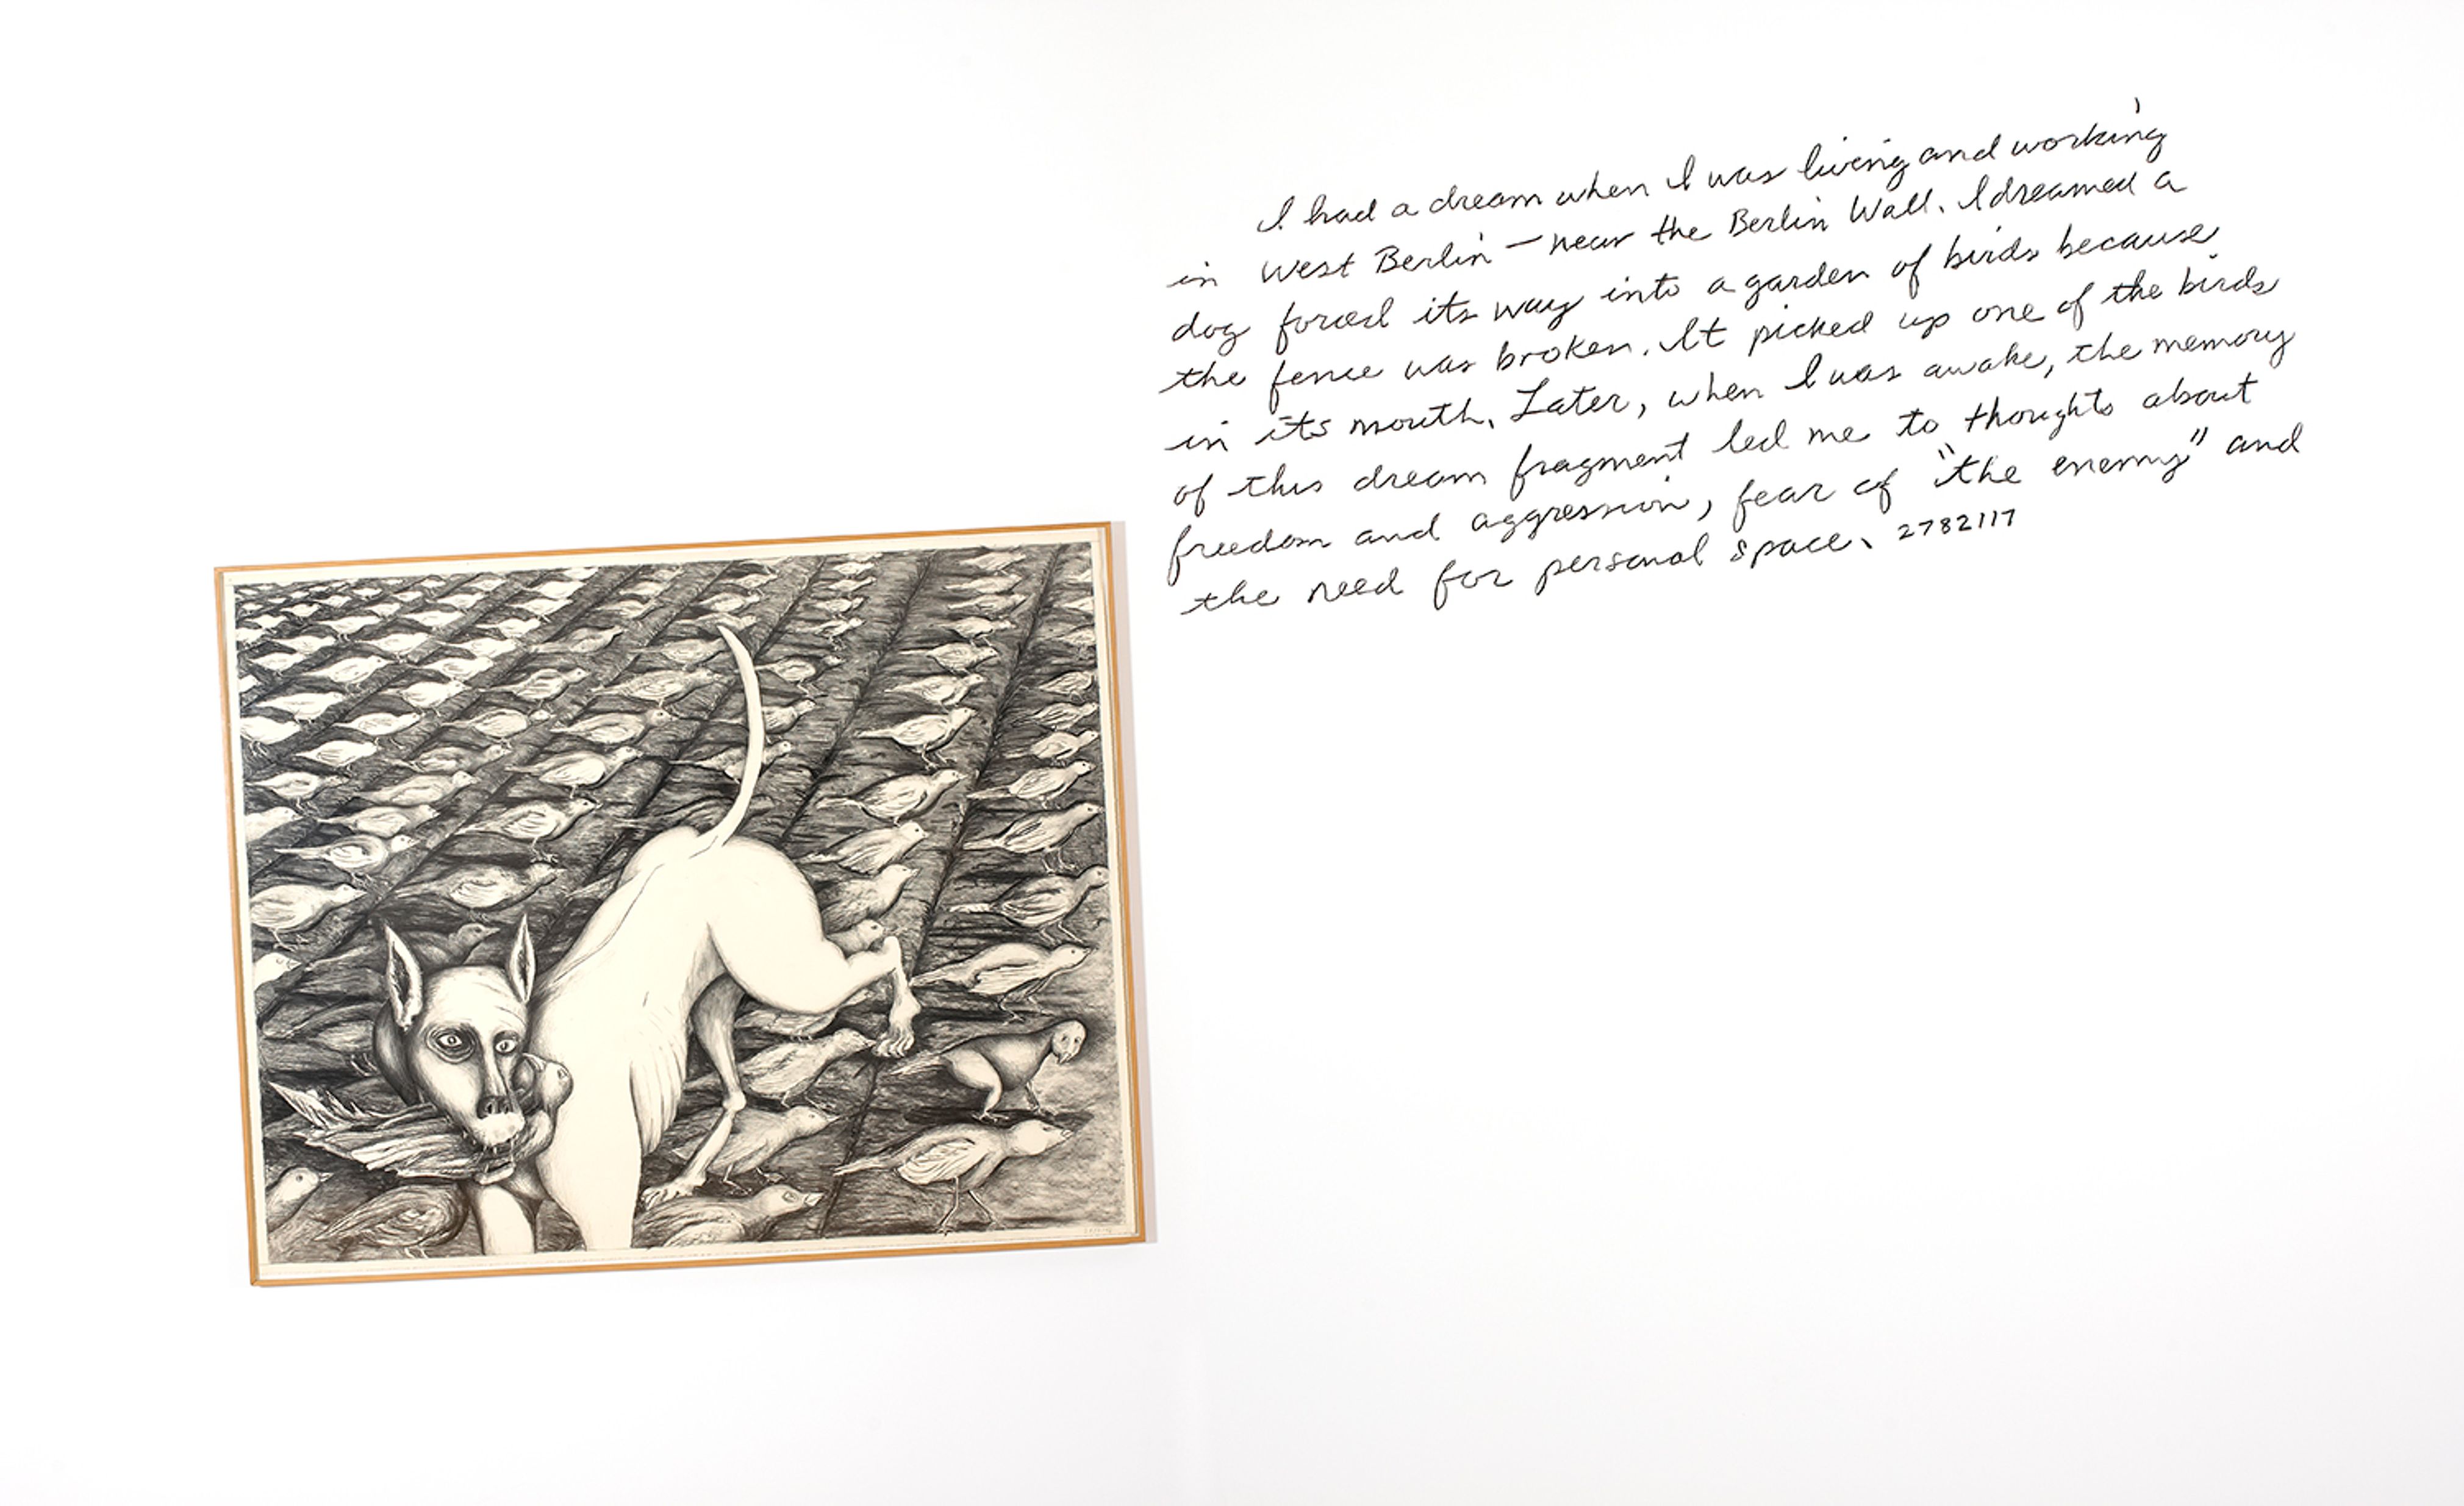 I had a dream when I was living and working
in West Berlin — near the Berlin Wall. I dreamed a
dog forced its way into a garden of birds because
the fence was broken. It picked up one of the birds
in its mouth. Later, when I was awake, the memory
of this dream fragment led me to thoughts about
freedom and aggression, fear of "the enemy" and
the need for personal space. 2782117